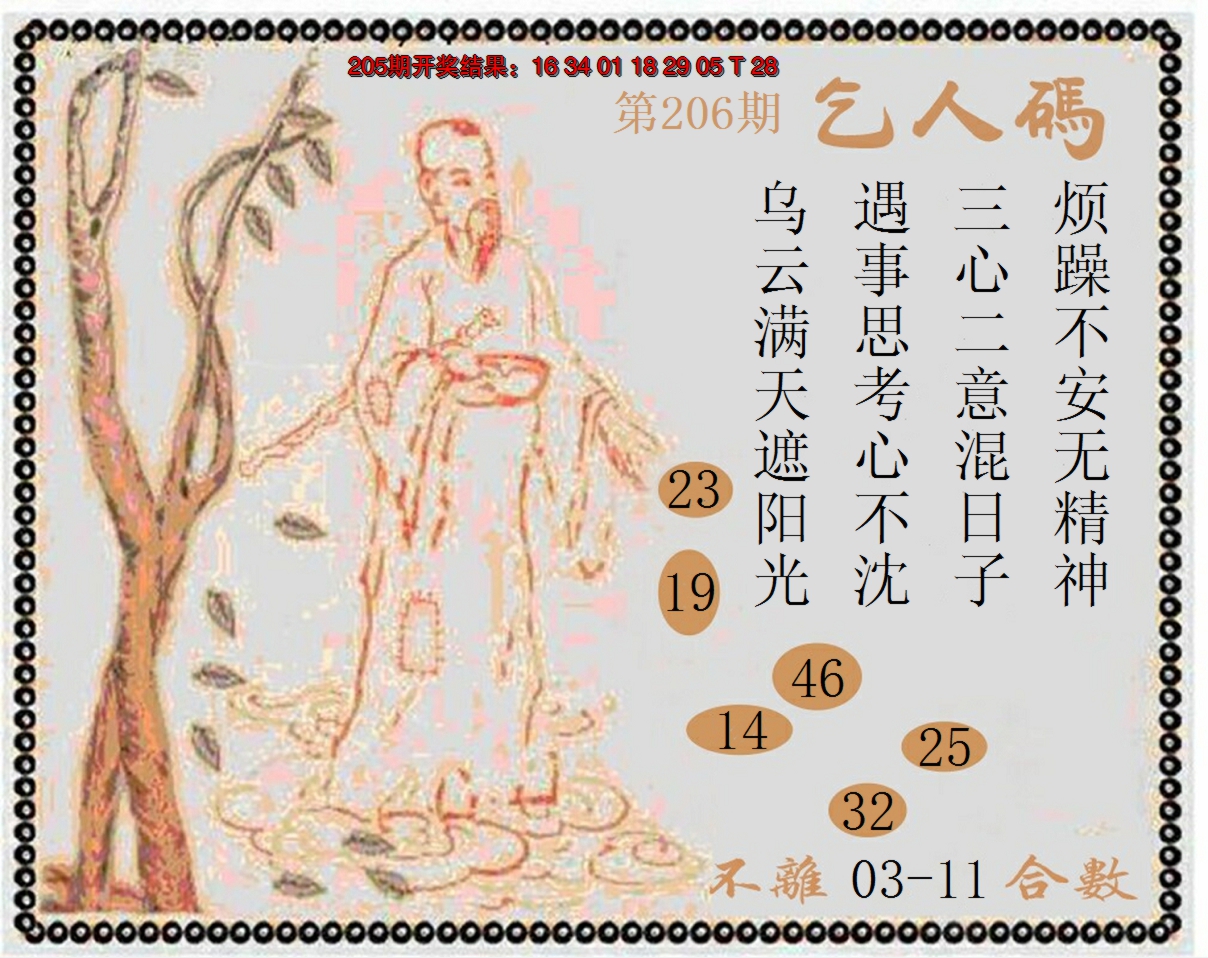 205期开奖结果：16 34 01 18 29 05 T 28
第206期 乞人碼
烦躁不安无精神
三心二意混日子
遇事思考心不沈
乌云满天遮阳光
23
19
46
14
25
32
不離 03-11 合數